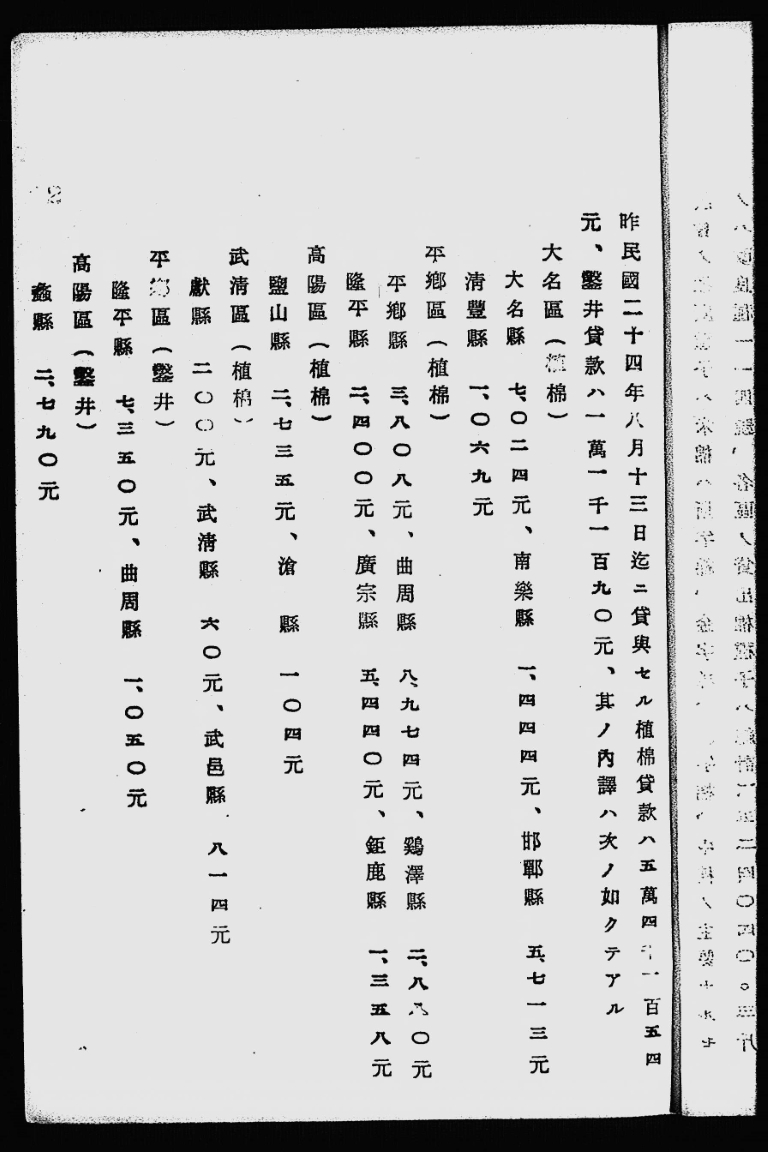 昨民國二十四年八月十三日迄ニ貸與セル植棉貸款ハ五萬四千一百五四
元、鑿井貸款ハ一萬一千一百九〇元、其ノ內譯ハ次ノ如クテアル
大名區(植棉)
大名縣 七、〇二四元、南樂縣 一、四四四元、邯鄲縣 五、七一三元
清豐縣 一、〇六九元
平鄉區(植棉)
平鄉縣 三、八〇八元、曲周縣 八、九七四元、鷄澤縣 二、八八〇元
隆平縣 二、四〇〇元、廣宗縣 五、四四〇元、鉅鹿縣 一、三五八元
高陽區(植棉)
鹽山縣 二、七三五元、滄 縣 一〇四元
武清區(植棉)
獻縣 二〇〇元、武清縣 六〇元、武邑縣 八一四元
平鄉區(鑿井)
隆平縣 七、三五〇元、曲周縣 一、〇五〇元
高陽區(鑿井)
蠡縣 二、七九〇元